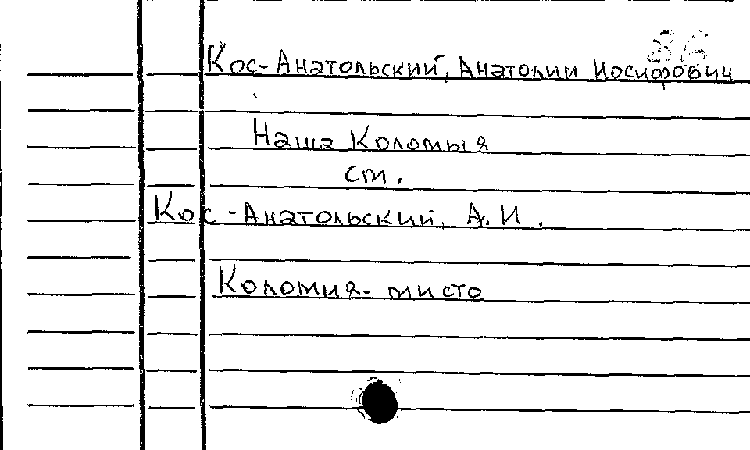 Кос-Анатольский, Анатолий Иосифович
Наша Коломыя
ст.
Кос-Анатольский, А.И.
Коломия-мисто